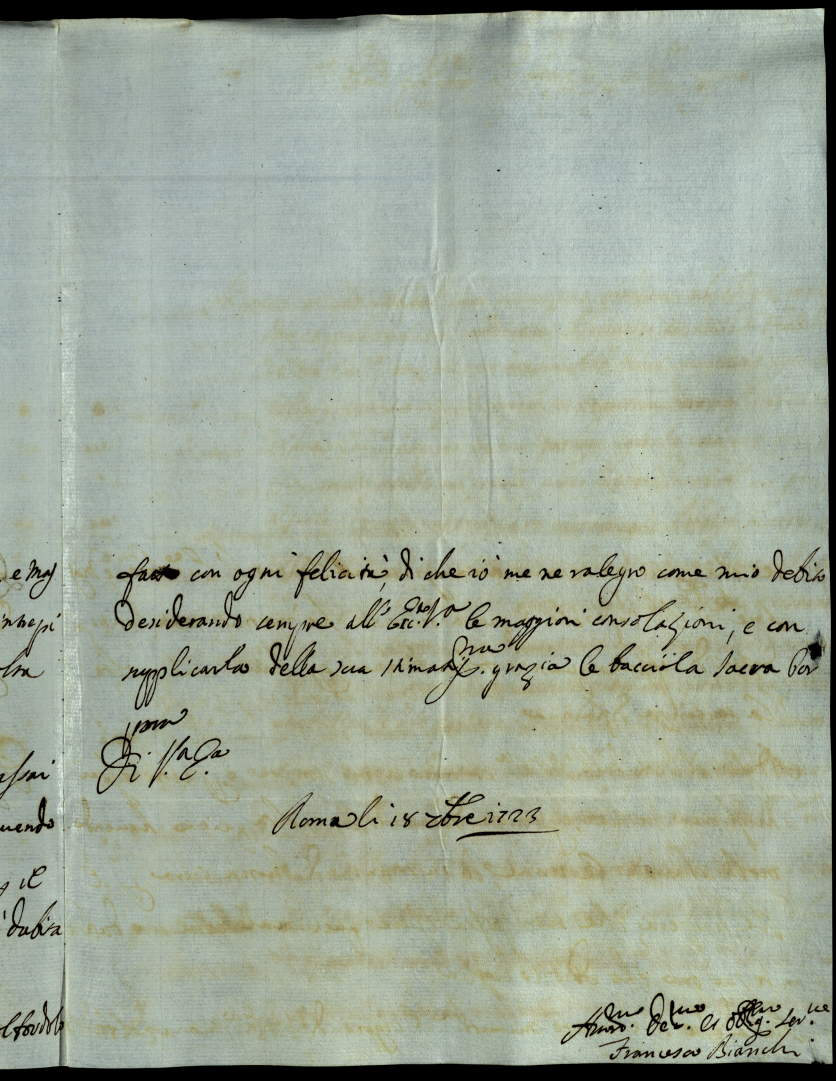 e mag
fatto con ogni felicità, di che io me ne ralegro come mio debito
desiderando sempre all' Ecc. V.ra le maggiori consolazioni, e con
supplicarla della sua stimatiss.ma grazia le baccio la sacra Por
pora
Di V.ra E.za
assai
Roma li 18 xbre 1723
uendo
il
dubita
Humo. Dev.mo et obblig.mo Ser.re
Francesco Bianchi